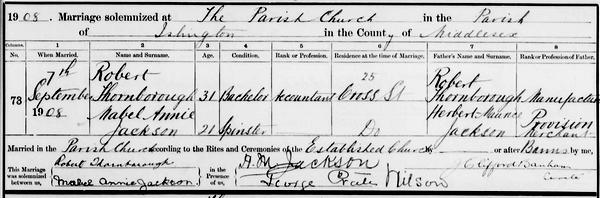 1908. Marriage solemnized at The Parish Church in the Parish
of Islington in the County of Middlesex
Columns. 1 2 3 4 5 6 7 8
No. When Married. Name and Surname. Age. Condition. Rank or Profession. Residence at the time of Marriage. Father's Name and Surname. Rank or Profession of Father.
73 07th September 1908 Robert Thornborough 31 Bachelor Accountant 25 Cross St Robert Thornborough Manufacturer
Mabel Annie Jackson 21 Spinster Do Herbert Jackson Provision Merchant
Married in the Parish Church according to the Rites and Ceremonies of the Established Church or after Banns by me,
This Marriage was solemnized between us, Robert Thornborough Mabel Annie Jackson in the Presence of us, A.M. Jackson George Wilson J Clifford Banham Curate